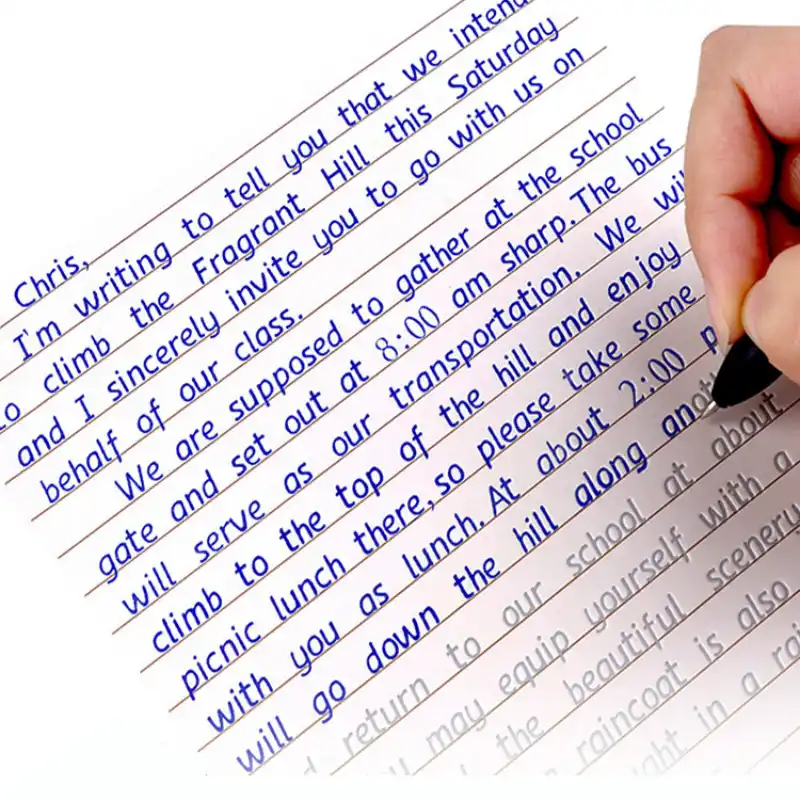 Chris,
I'm writing to tell you that we intend
to climb the Fragrant Hill this Saturday
and I sincerely invite you to go with us on
behalf of our class.
We are supposed to gather at the school
gate and set out at 8:00 am sharp. The bus
will serve as our transportation. We
climb to the top of the hill and enjoy
picnic lunch there, so please take some
with you as lunch. At about 2:00
will go down the hill along
return to our school at about
may equip yourself with a
the beautiful scenery
raincoat is also
in a